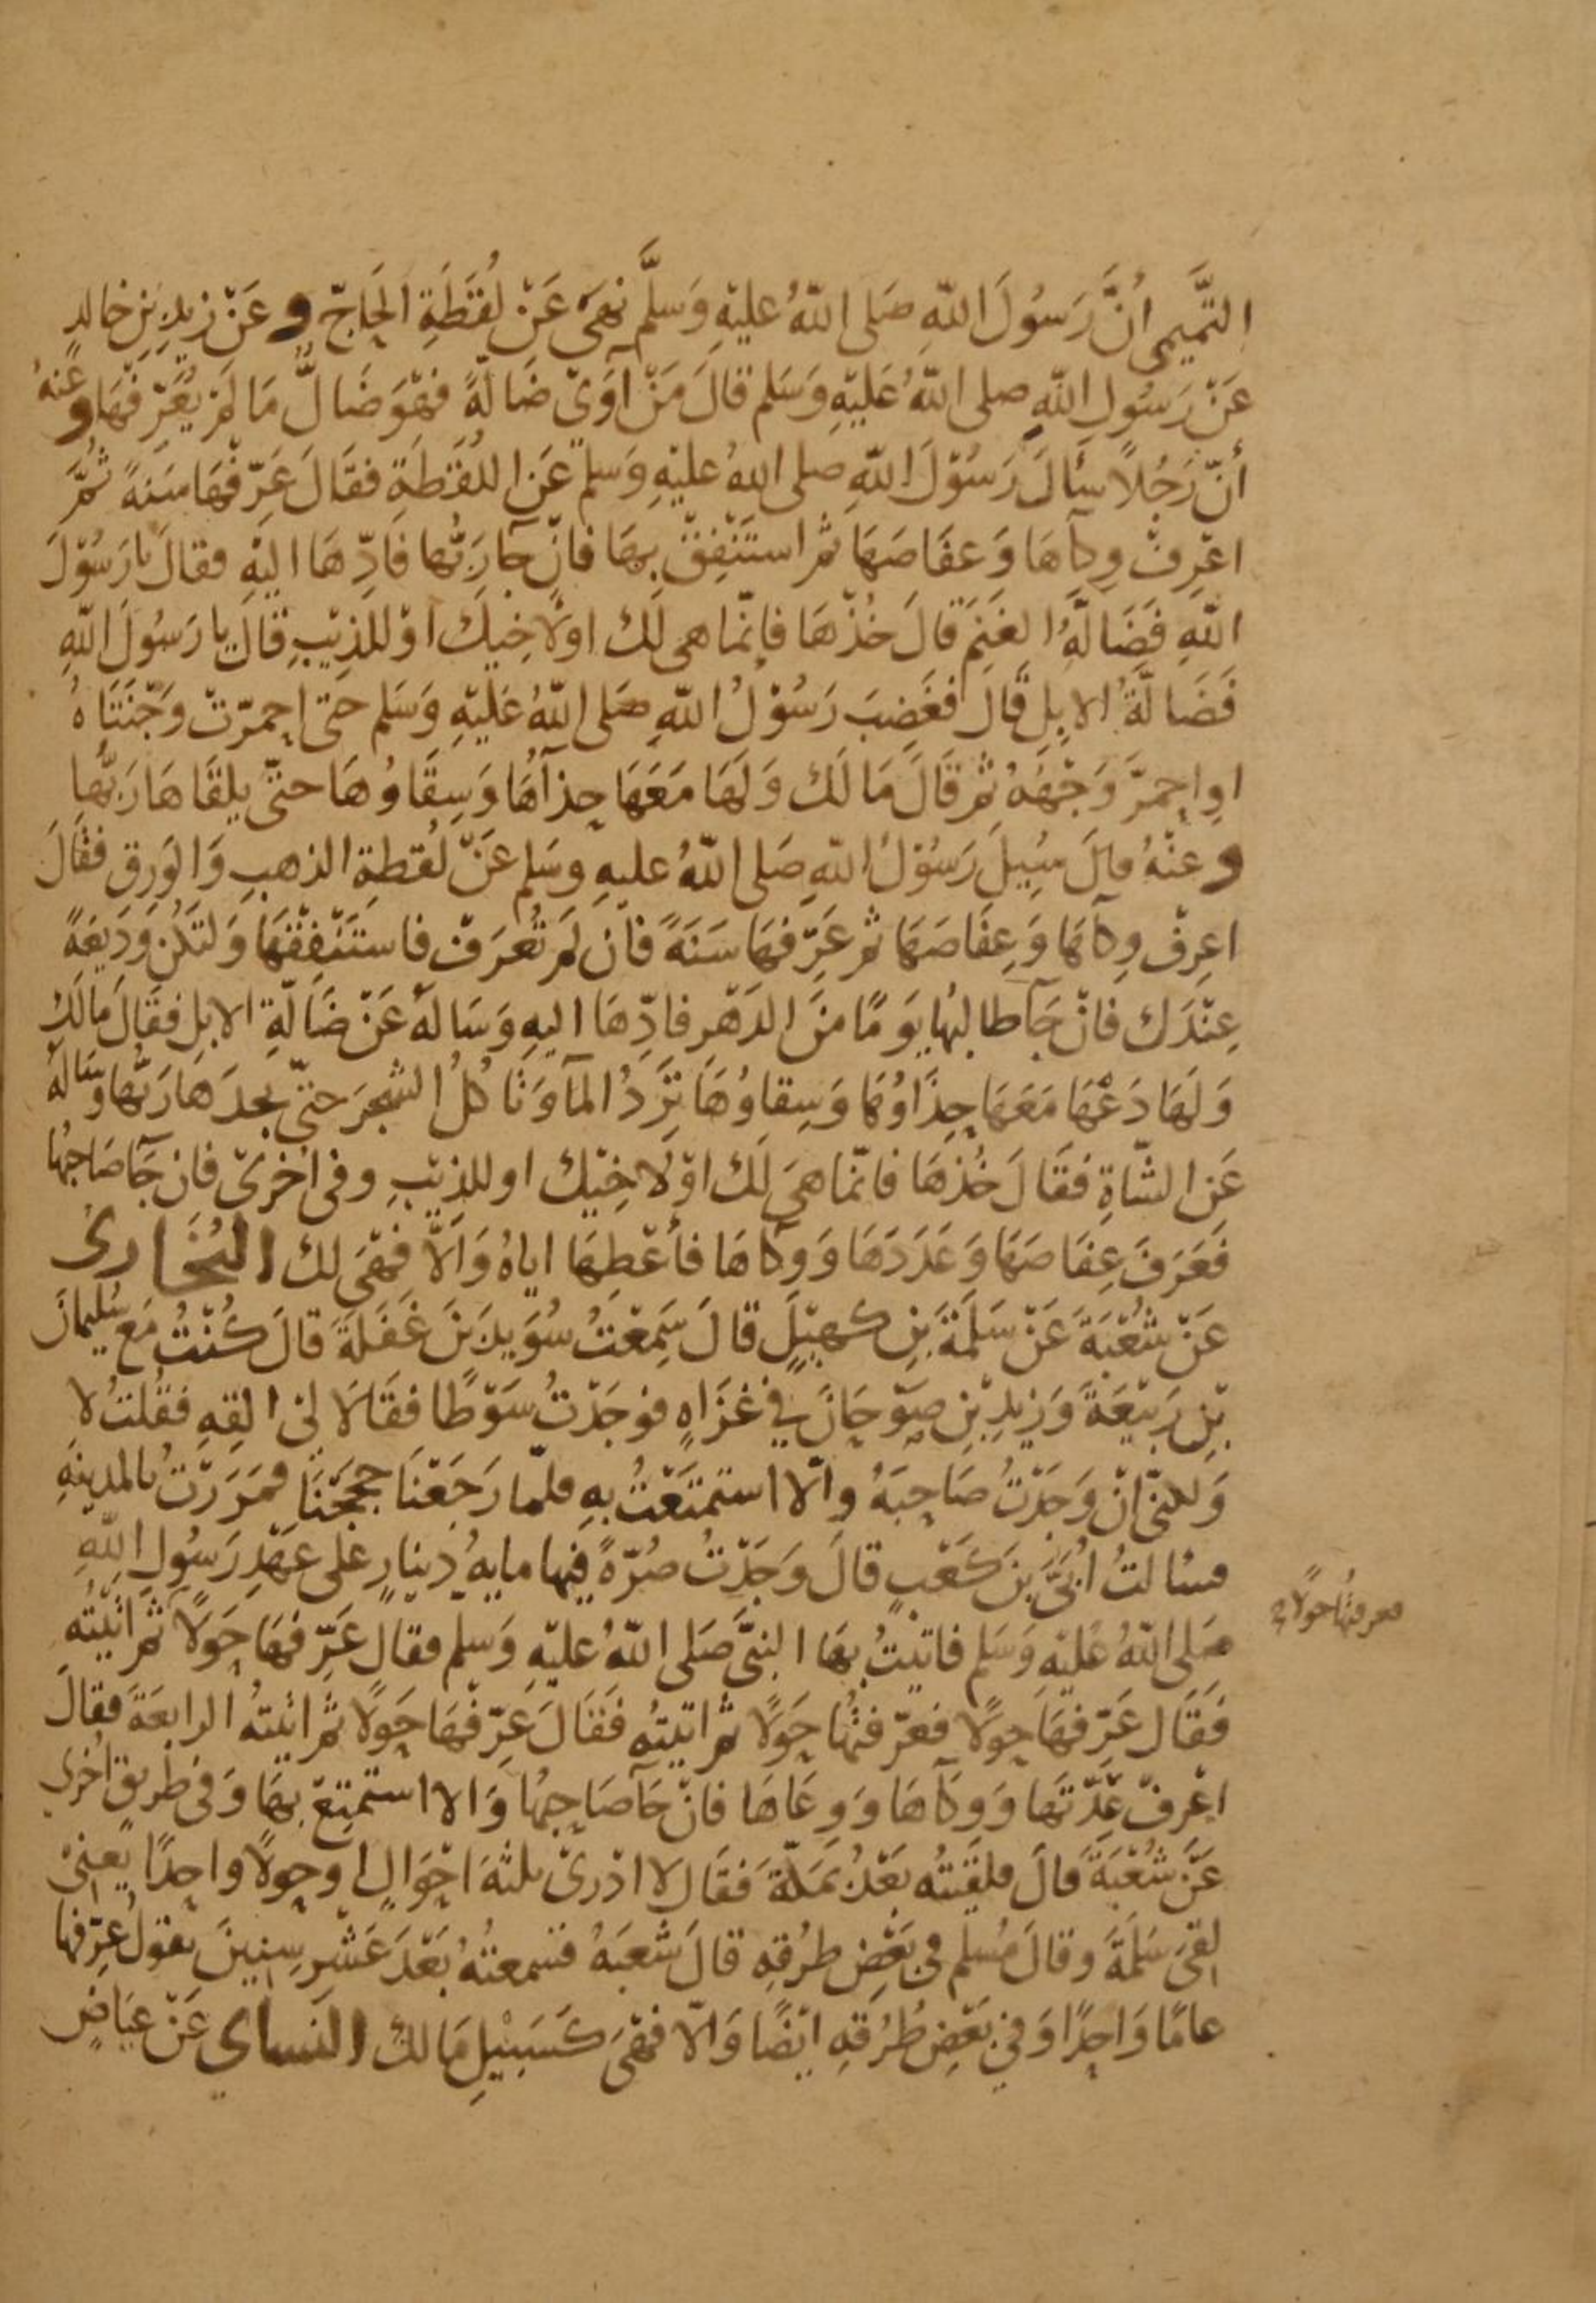 التَّيمي أنَّ رَسُولَ اللّهِ صَلى اللّهُ عليهِ وَسَلَّم نهَى عَنْ لُقَطَةِ الحَاجّ وعَنْ زيدِ بنِ خالدٍ
عَنْ رَسُولِ اللّهِ صلى اللهُ عَليهِ وَسَلم قالَ مَنْ آوَىْ ضَالّةً فهْوَ ضَالٌّ مَا لمْ يُعَرّفْهَا وعَنهُ
أنّ رَجُلاً سَألَ رَسُوْلَ اللّهِ صلى اللهُ عليْهِ وَسَلم عَن اللُقَطَةِ فقَالَ عَرّفْهَا سَنةً ثُمَّ
اعْرِفْ وِكآهَا وَعفَاصَهَا ثمّ استَنْفِقْ بِهَا فانْ جآ رَبُّها فَادِّهَا اليْهِ فقالَ يارَسُوْلَ
اللّهِ فَضَالّةُ الغَنِمَ قالَ خُذْهَا فاِنّما هى لَك اولاَخِيْكَ اوْ للذيْبِ قالَ يا رَسُولَ اللّهِ
فَضَالّةُ الابِلِ قالَ فغَضِبَ رَسُوْلُ اللّهِ صَلى اللّهُ عَليْهِ وَسَلم حتى احمرّتْ وَجْنَتَاهُ
اوِ احمرَّ وَجْهَهُ ثمّ قَالَ مَا لَكَ وَلَهَا مَعَهَا حِذآهَا وَسِقَاوُهَا حتىّ يلقَاهَا رَبُّها
وعنْهُ قالَ سُيِلَ رَسُوْلُ اللّهِ صَلى اللّهُ عليهِ وسَلم عَنْ لُقطةِ الذهبِ وَالوَرِق فقَالَ
اعرِفْ وِكآهَا وَعِفَاصَهَا ثمّ عَرِّفهَا سَنَةً فانْ لمْ تُعرَفْ فاستَنْفِقْهَا وَلتَكُن وَدَيعَةً
عِنْدَك فانْ جَآ طالبُها يوَمًا منَ الدَهْر فادِّهَا اليهِ وَسَالهُ عَنْ ضَالّةِ الابلِ فقَالَ مَالَكَ
وَلَهَا دَعْهَا مَعَهَا حِذَاوُهَا وَسِقاوُهَا تَرِدُ المآ وَتَاكُلُ الشجَرَ حتىّ يجدَهَا رَبُّها وسَالهُ
عَنِ الشّاةِ فقَالَ خُذهَا فانّما هىَ لَكَ اوْ لاخِيْكَ او للذِيْبِ وفى اخْرىْ فان جَآ صَاحبُها
فَعَرَفَ عِفَاصَهَا وَعَدَدَهَا وَوكآهَا فأعْطِهَا اياهُ وَالاّ فهْىَ لك البُخَارىُ
عَنْ شُعْبَةَ عَنْ سَلَمَةَ بَنِ كهيْلٍ قالَ سَمِعْتُ سُوَيدَ بَنَ غَفَلَةَ قالَ كُنْتُ مَع سُليمانَ
بْنِ رَبيْعَةَ وَزيدِ بْنِ صوْحَانَ في غزَاهٍ فوجَدْتُ سَوْطًا فقَالاَ لىْ القِهِ فقُلتُ لا
وَلكنىّ انْ وَجَدْتُ صَاحِبَهُ والاّ استمتَعْتُ بهِ فلمّا رَجَعْنَا حججْنَا فمَرَرْتُ بالمدينةِ
فسَالتُ ابَىَّ بنَ كَعْبٍ قالَ وَجَدْتُ صُرّةً فيها مايةُ دينارٍ على عَهْدِ رَسُولِ اللّهِ
صَلى اللّهُ عليْهِ وَسَلم فاتيتُ بهَا النبىَّ صَلى اللّهُ عليْهِ وَسلم فقالَ عَرِّفهَا حَولاً ثمّ اتيْتُه
فعرفتها حولا
فَقَالَ عَرِّفهَا حولاً فعَرّفتُها حَولاً ثمّ اتيتُه فَقَالَ عَرّفْهَا حَولاً ثمّ اتيتُهُ الرابعَةَ فقالَ
اعْرِفْ عِدّتَها وَوكآهَا وَوِعَاهَا فانْ جَآ صَاحبُها وَالا استمتِعْ بهَا وَفى طريقٍ اخْرى
عَنْ شُعْبَةَ قالَ فلقيتُه بَعْدُ بمَكّةَ فَقَالَ لا ادْرىْ ثلثةَ احْوَالٍ اوحولاً واحِدًا يَعنىْ
لقىَ سَلَمَةَ وقالَ مُسْلم فى بَعْضِ طرُقهِ قالَ شعبَةُ فسَمعتُهُ بَعْدَ عَشْرِ سِنينَ يقوْلُ عرّفها
عامًا وَاحِدًا وَفى بَعْضِ طُرُقهِ ايْضًا وَالاّ فهْىَ كَسَبيْلِ مَالكَ النَساي عَنْ عِيَاضِ